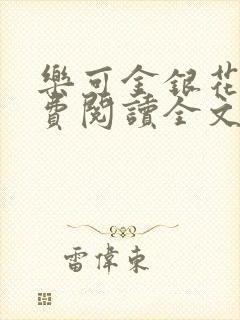 樂可金銀花
費閱讀全文
雷偉東